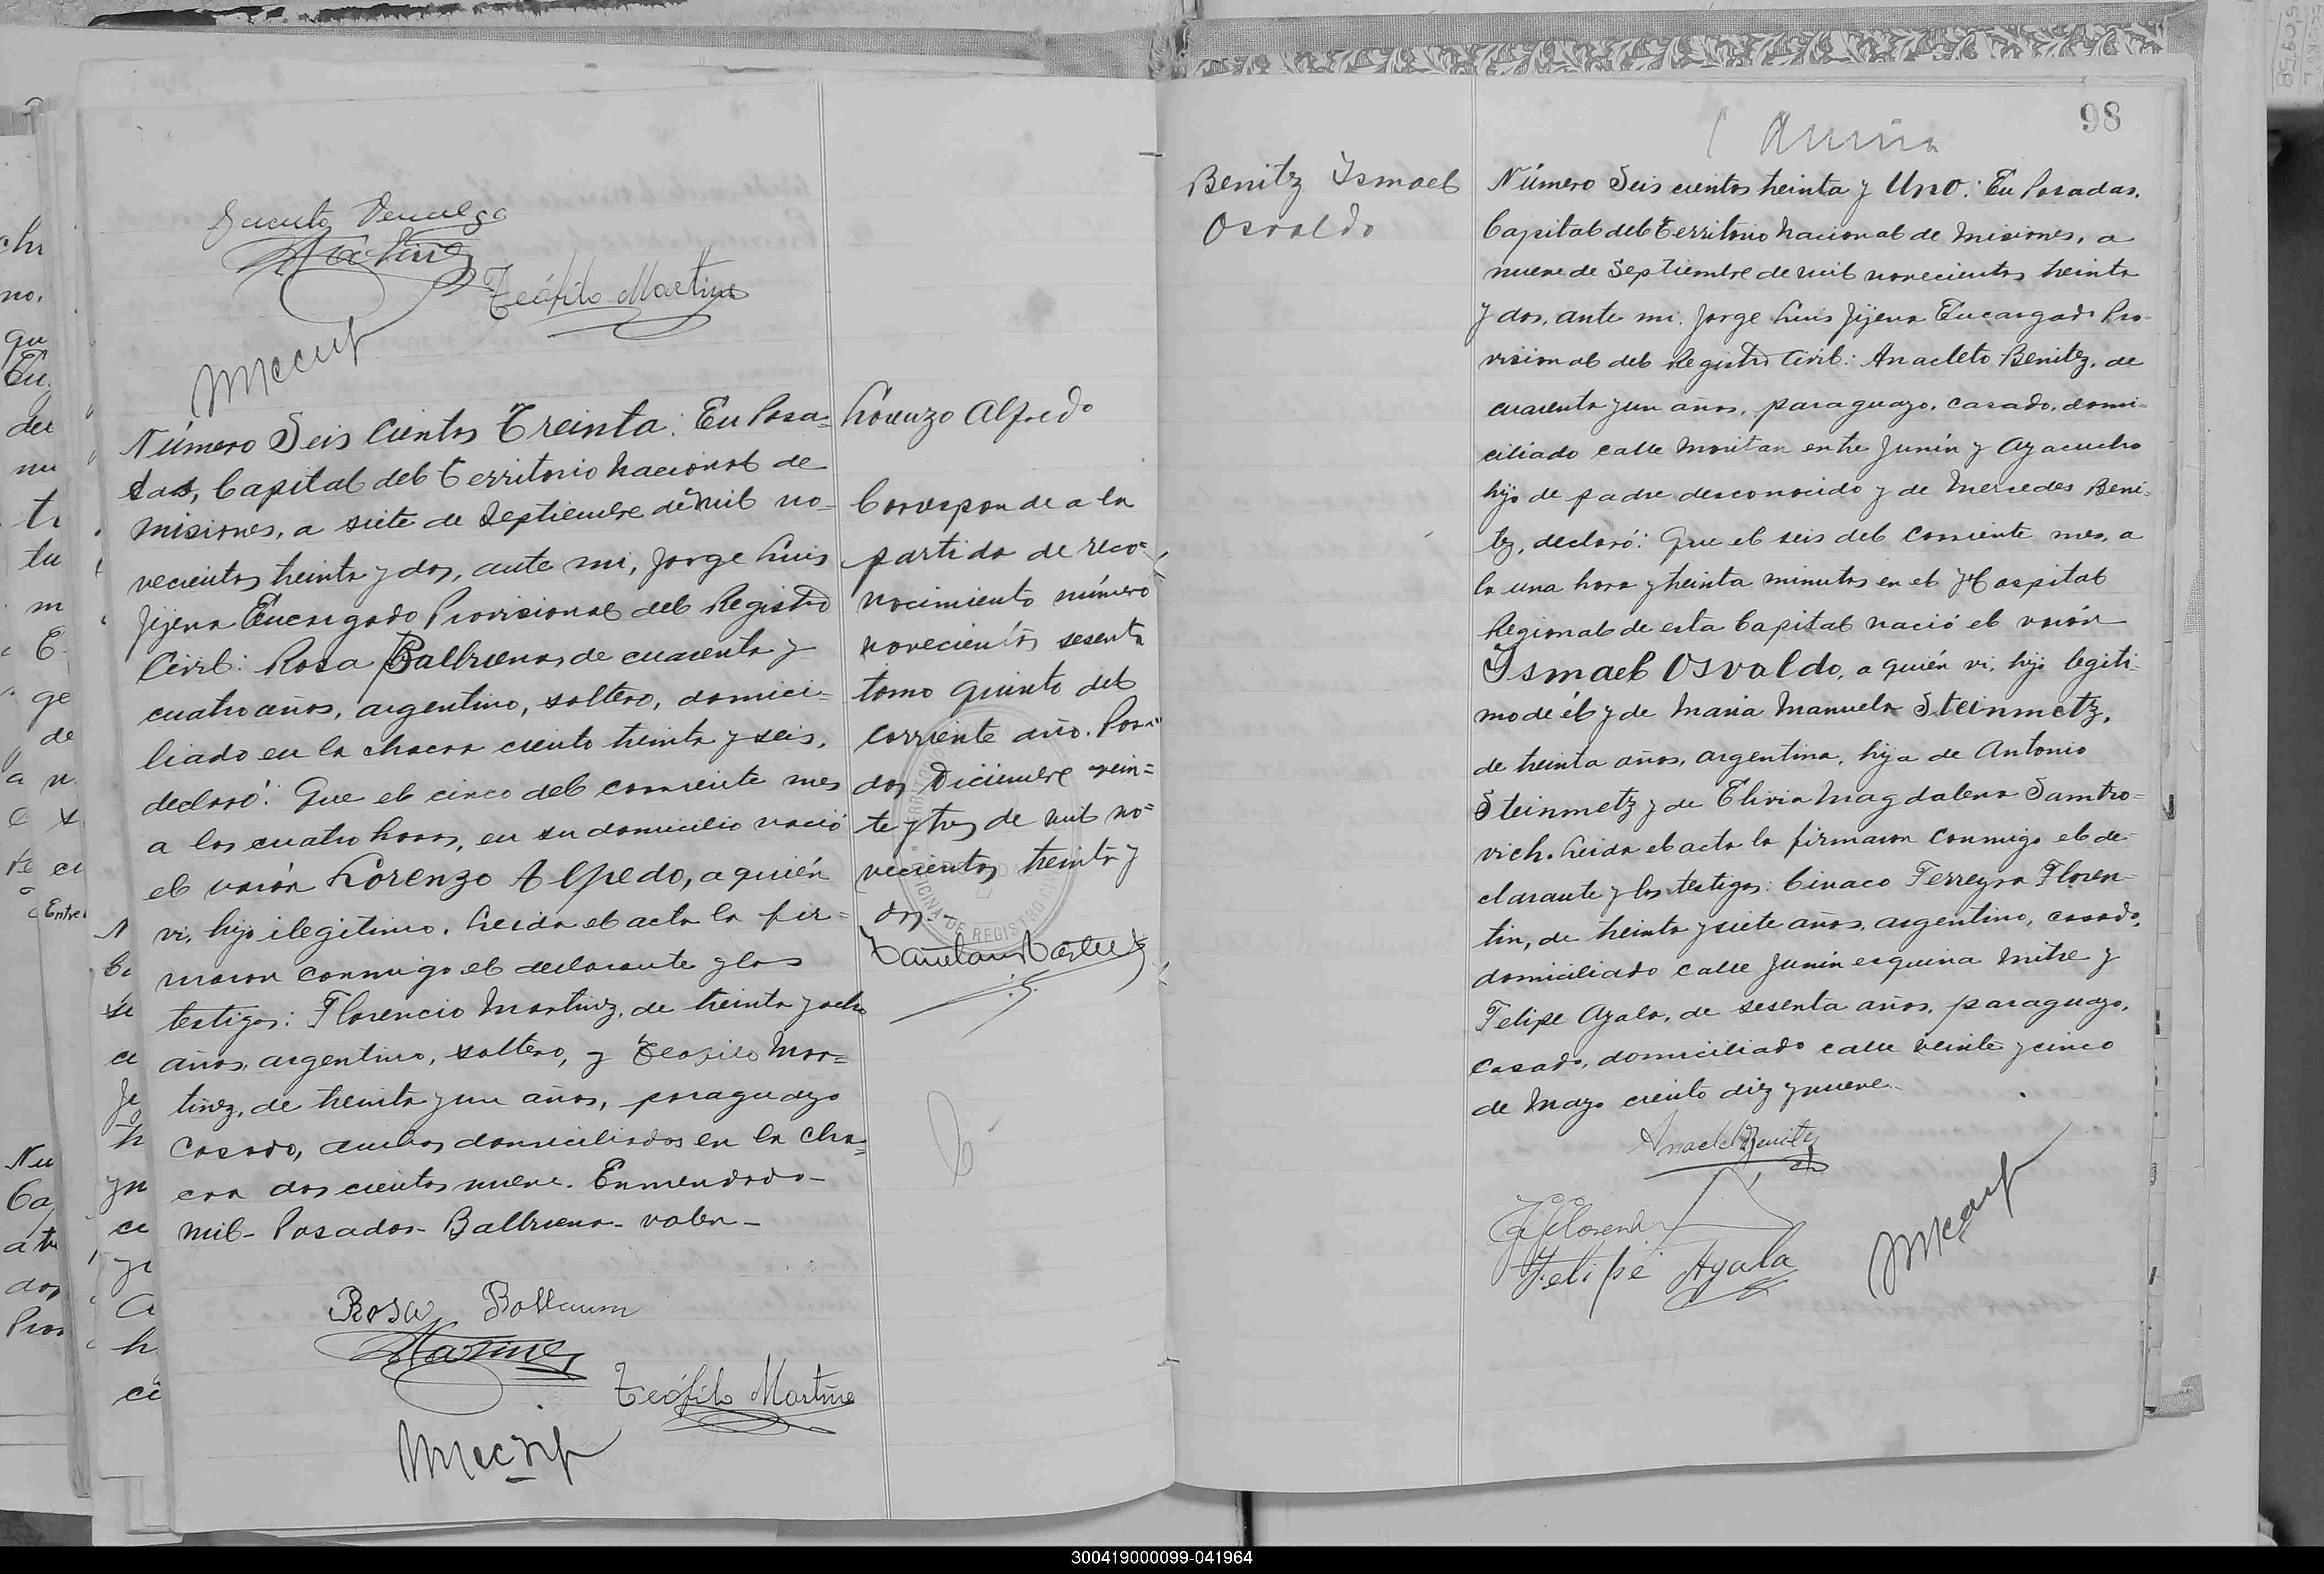 Teófilo Martinez
Número Seis Cientos Treinta: En Posa=
das, Capital del Territorio Nacional de
Misiones, a siete de Septiembre de mil no-
vecientos treinta y dos, ante mi, Jorge Luis
Jijena Encargado Provisional del Registro
Civil: Rosa Balbuena, de cuarenta y
cuatro años, argentino, soltero, domici=
liado en la chacra ciento treinta y seis,
declaró: Que el cinco del corriente mes
a las cuatro horas, en su domicilio nació
el varón Lorenzo Alfredo, a quién
vi, hijo ilegitimo. Leida el acta la fir=
maron conmigo el declarante y los
testigos: Florencio Martinez, de treinta y ocho
años, argentino, soltero, y Teofilo Mar=
tinez, de treinta y un años, paraguayo
casado, ambos domiciliados en la cha=
cra dos cientos nueve. Enmendado-
mil- Posadas- Balbuena- valen-
Rosa
Martinez
Teófilo Martinez
Lorenzo Alfredo
Corresponde a la
partida de reco=
nocimiento número
novecientos sesenta
tomo quinto del
corriente año. Posa=
das, Diciembre vein=
te y tres de mil no=
vecientos treinta y
dos.-
OFICINA DE REGISTRO
98
Benitez Ismael
Osvaldo
Número Seis cientos treinta y Uno: En Posadas,
Capital del Territorio Nacional de Misiones, a
nueve de Septiembre de mil novecientos treinta
y dos, ante mi, Jorge Luis Jijena Encargado Pro-
visional del Registro Civil: Anacleto Benitez, de
cuarenta y un años, paraguayo, casado, domi-
ciliado calle entre Junín y Ayacucho
hijo de padre desconocido y de Mercedes Beni-
tez, declaró: Que el seis del corriente mes, a
la una hora y treinta minutos en el Hospital
Regional de esta Capital nació el varón
Ismael Osvaldo, a quién vi, hijo legiti-
mo de él y de Maria Manuela Steinmetz,
de treinta años, argentina, hija de Antonio
Steinmetz y de Elivia Magdalena Samtro-
vich. Leida el acta la firmaron conmigo el de-
clarante y los testigos: Ciriaco Ferreyra Floren-
tin, de treinta y siete años, argentino, casado,
domiciliado calle Junín esquina Mitre y
Felipe Ayala, de sesenta años, paraguayo,
casado, domiciliado calle veinte y cinco
de Mayo ciento diez y nueve.
Anacleto Benitez
Felipe Ayala
300419000099-041964